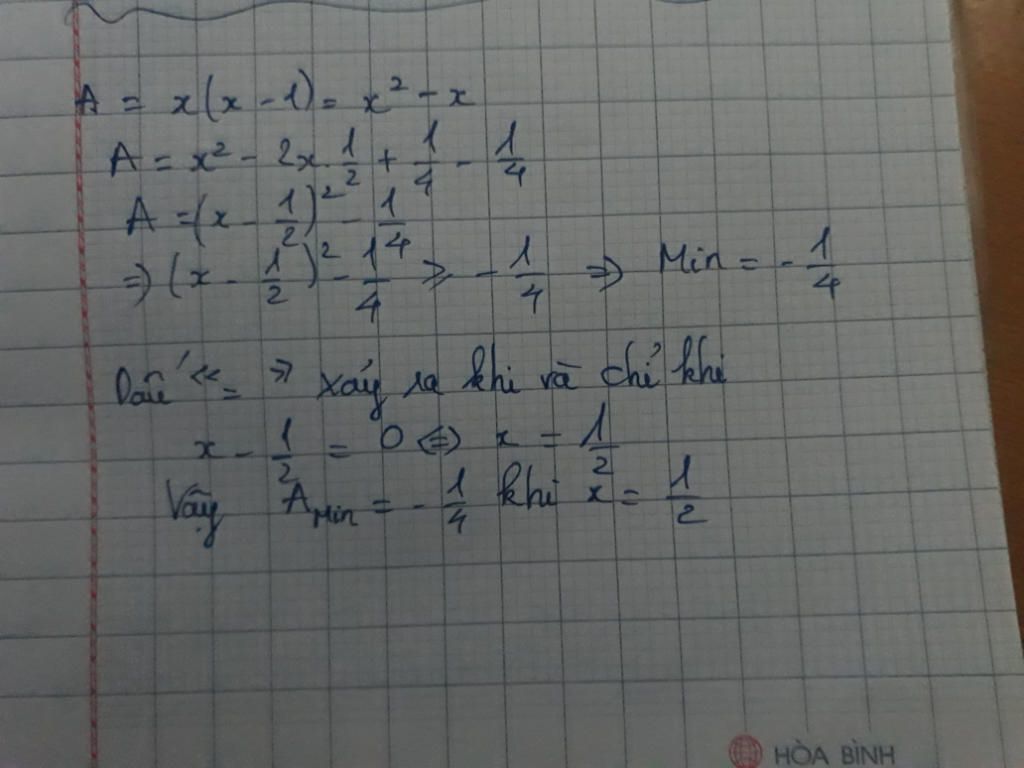 A = x(x - 1) = x² - x
A = x² - 2x 1/2 + 1/4 - 1/4
A = (x - 1/2)² - 1/4
⇒ (x - 1/2)² - 1/4 ≥ - 1/4 ⇒ Min = - 1/4
Dấu "=" xảy ra khi và chỉ khi
x - 1/2 = 0 ⇔ x = 1/2
Vậy A Min = - 1/4 khi x = 1/2
HÒA BÌNH